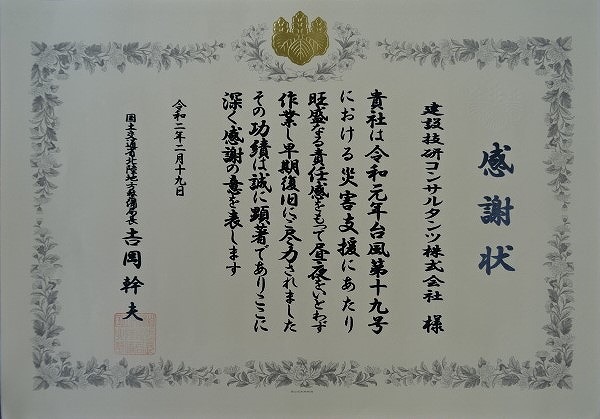 感謝状
建設技研コンサルタンツ株式会社 様
貴社は令和元年台風第十九号
における災害支援にあたり
旺盛なる責任感をもって昼夜をいとわず
作業し早期復旧に尽力されました
その功績は誠に顕著でありここに
深く感謝の意を表します
令和二年二月十九日
国土交通省北陸地方整備局長 吉岡幹夫